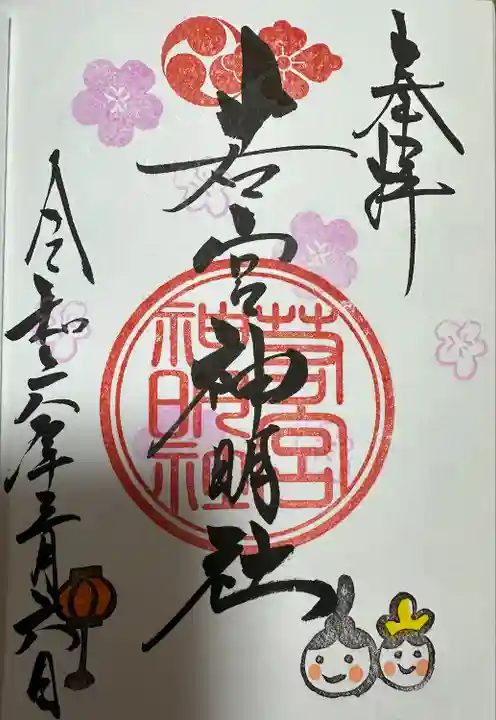 奉拝
若宮神明社
若宮
神明社
令和六年三月六日